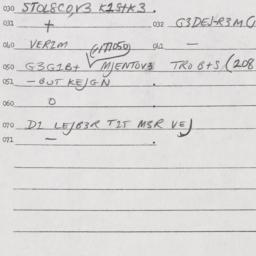 030 STOL8CO,V3 K1S+K3.
031 + 032 G3DEJ-R3M(
040 VER2M 041 -
050 G3G1B+ MJENTOV3 TRO B+S (208
051 - OUT KEJGN .
060 0
070 D1 LEJB3R T2T M3R VEJ
071 - .